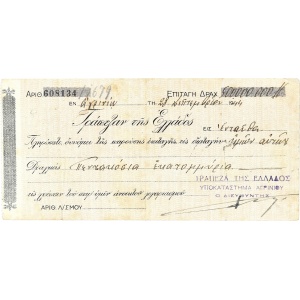 ΑΡΙΘ 608134 / 1679 ΕΠΙΤΑΓΗ ΔΡΑΧ.
ΕΝ Αγρινίῳ ΤΗ 28 Σεπτεμβρίου 1944
Τράπεζαν της Ελλάδος
εις Ἐνταῦθα
Πληρώσατε, δυνάμει της παρούσης επιταγής, εις διαταγήν ημών αυτών
Δραχμάς Πεντακόσια ἑκατομμύρια
εις χρέωσιν του παρ' υμίν ανοικτού λογαριασμού
ΤΡΑΠΕΖΑ ΤΗΣ ΕΛΛΑΔΟΣ
ΥΠΟΚΑΤΑΣΤΗΜΑ ΑΓΡΙΝΙΟΥ
Ο ΔΙΕΥΘΥΝΤΗΣ
ΑΡΙΘ Λ/ΣΜΟΥ